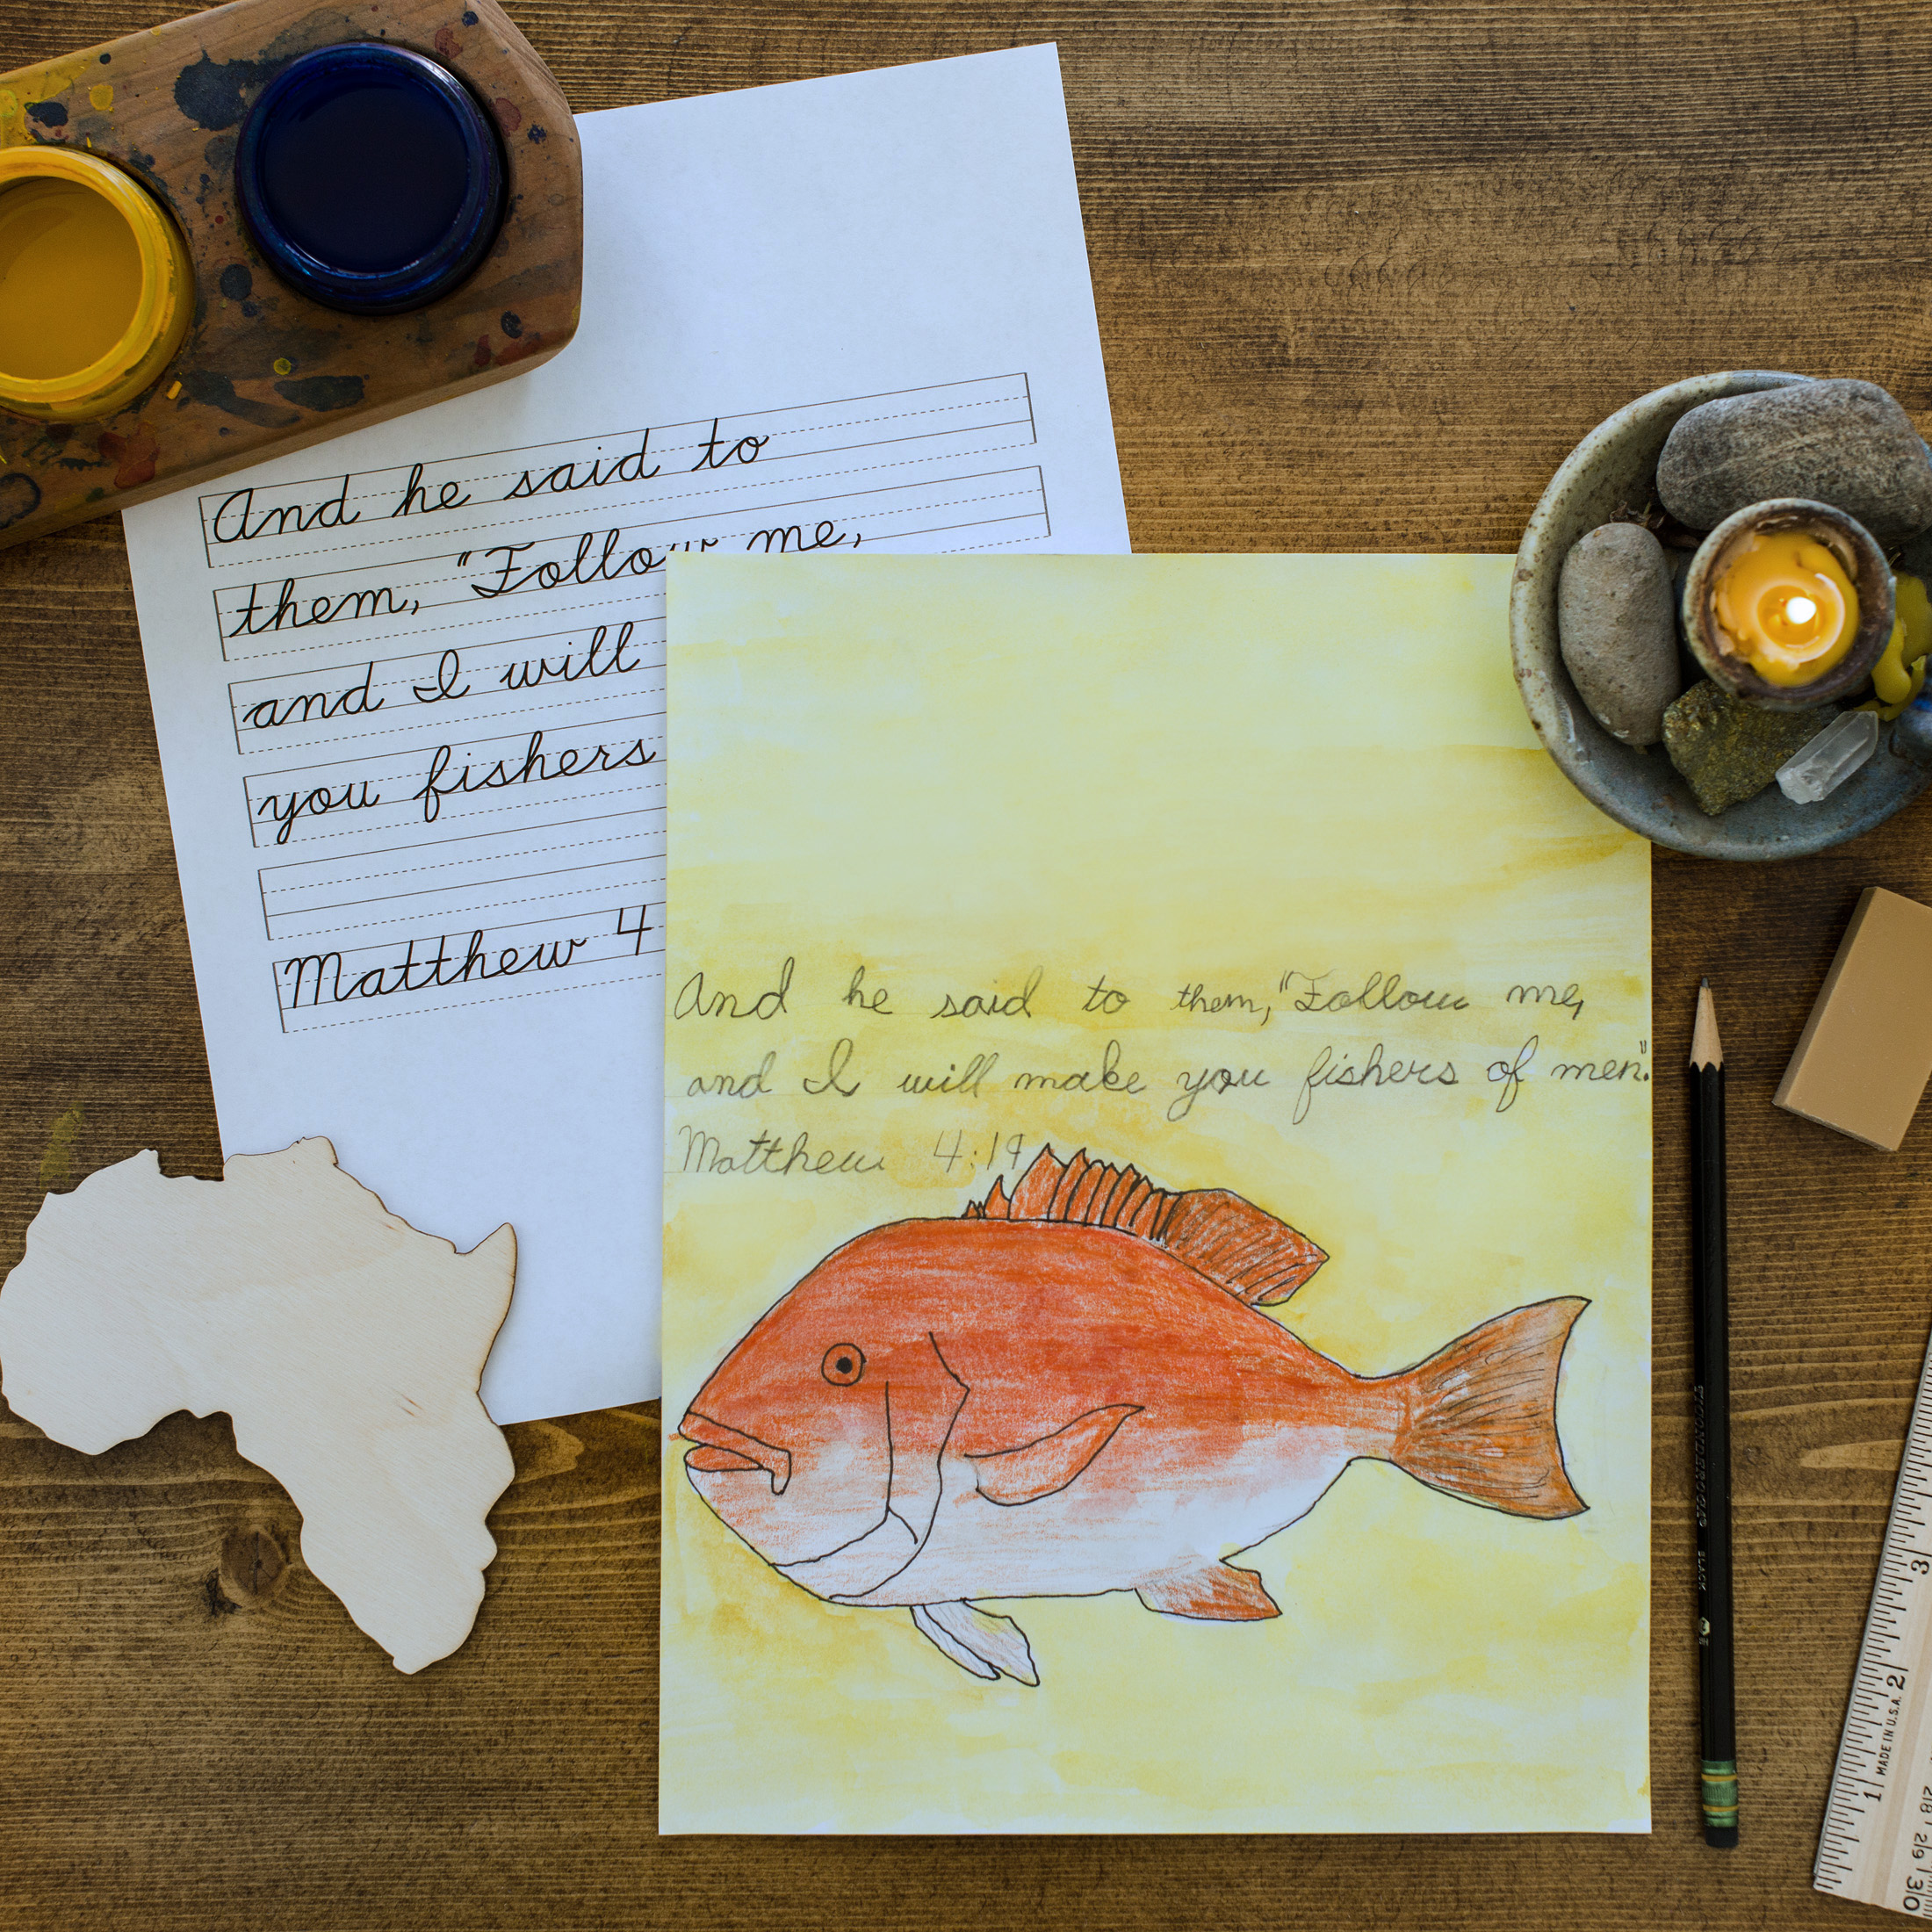 And he said to
them, "Follow me,
and I will
you fishers
Matthew 4
And he said to them, "Follow me,
and I will make you fishers of men."
Matthew 4:19
TICONDEROGA BLACK
HB
MADE IN U.S.A.
1 2 3
30 29 28